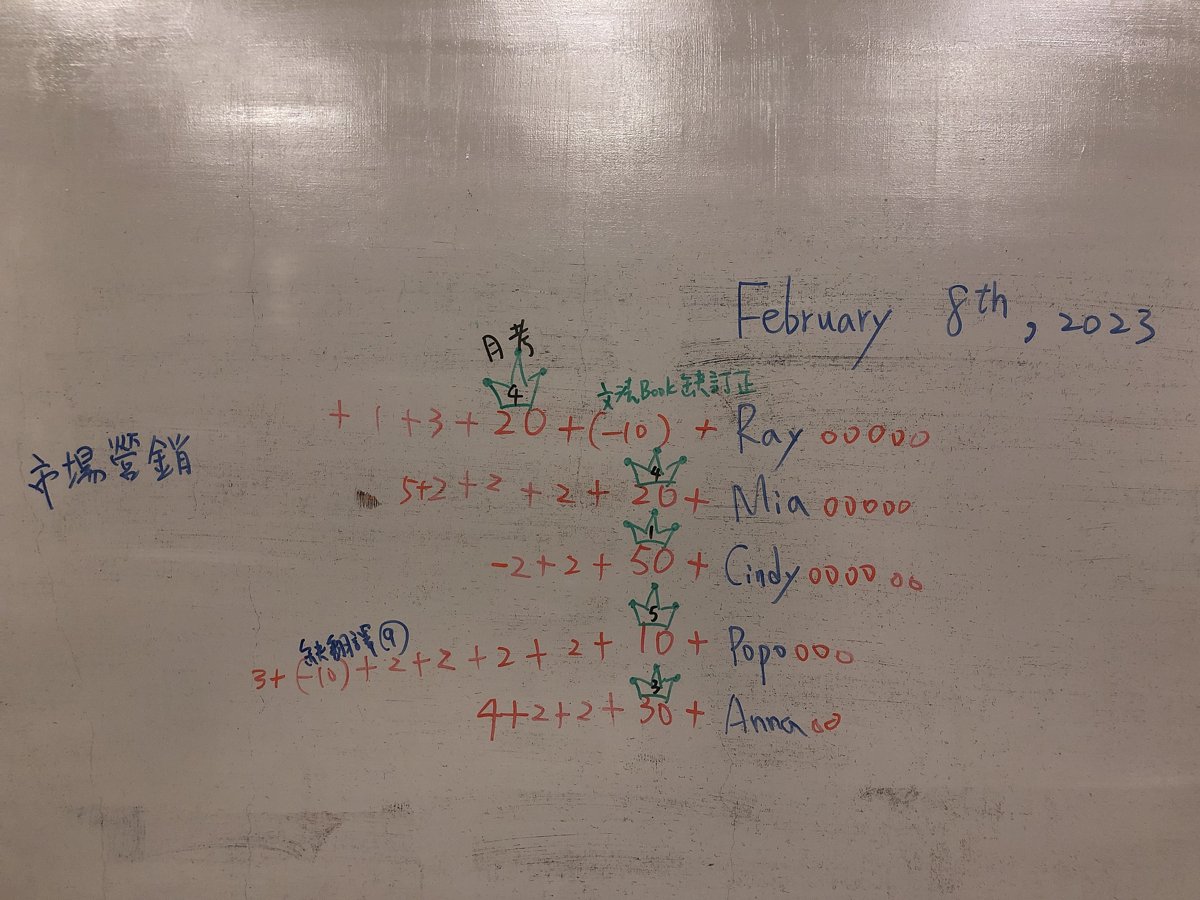 February 8th, 2023
月考
4
文法Book缺訂正
+ 1 + 3 + 20 + (-10) + Ray ooooo
市場營銷
4
5+2 + 2 + 2 + 20 + Mia ooooo
1
-2 + 2 + 50 + Cindy oooooo
5
缺翻譯(9)
3 + (-10) + 2 + 2 + 2 + 2 + 10 + Popo ooo
3
4 + 2 + 2 + 30 + Anna oo